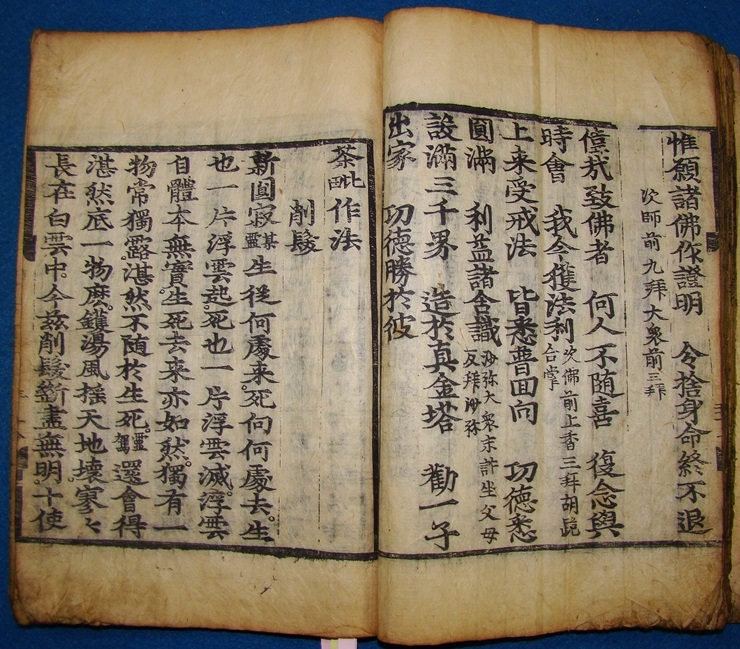 惟願諸佛作證明 今捨身命終不退
次師前九拜大衆前三拜
僖㢤致佛者 何人不随喜 復念與
時會 我今獲法利次佛前上香三拜胡跪合掌
上来受戒法 皆悉普回向 功德悉
圓滿 利益諸含識沙弥大衆末許坐父母反拜沙弥
設滿三千界 造於真金塔 勸一子
出家 功德勝於彼
茶毗作法
削髮
新圓寂某靈生從何處来。死向何處去。生
也一片浮雲起。死也一片浮雲滅。浮雲
自體本無實。生死去来亦如然。獨有一
物常獨露。湛然不随於生死。某靈還會得
湛然底一物麽。鑊湯風揺天地壊。寥々
長在白雲中。今玆削髮。斷盡無明。十使